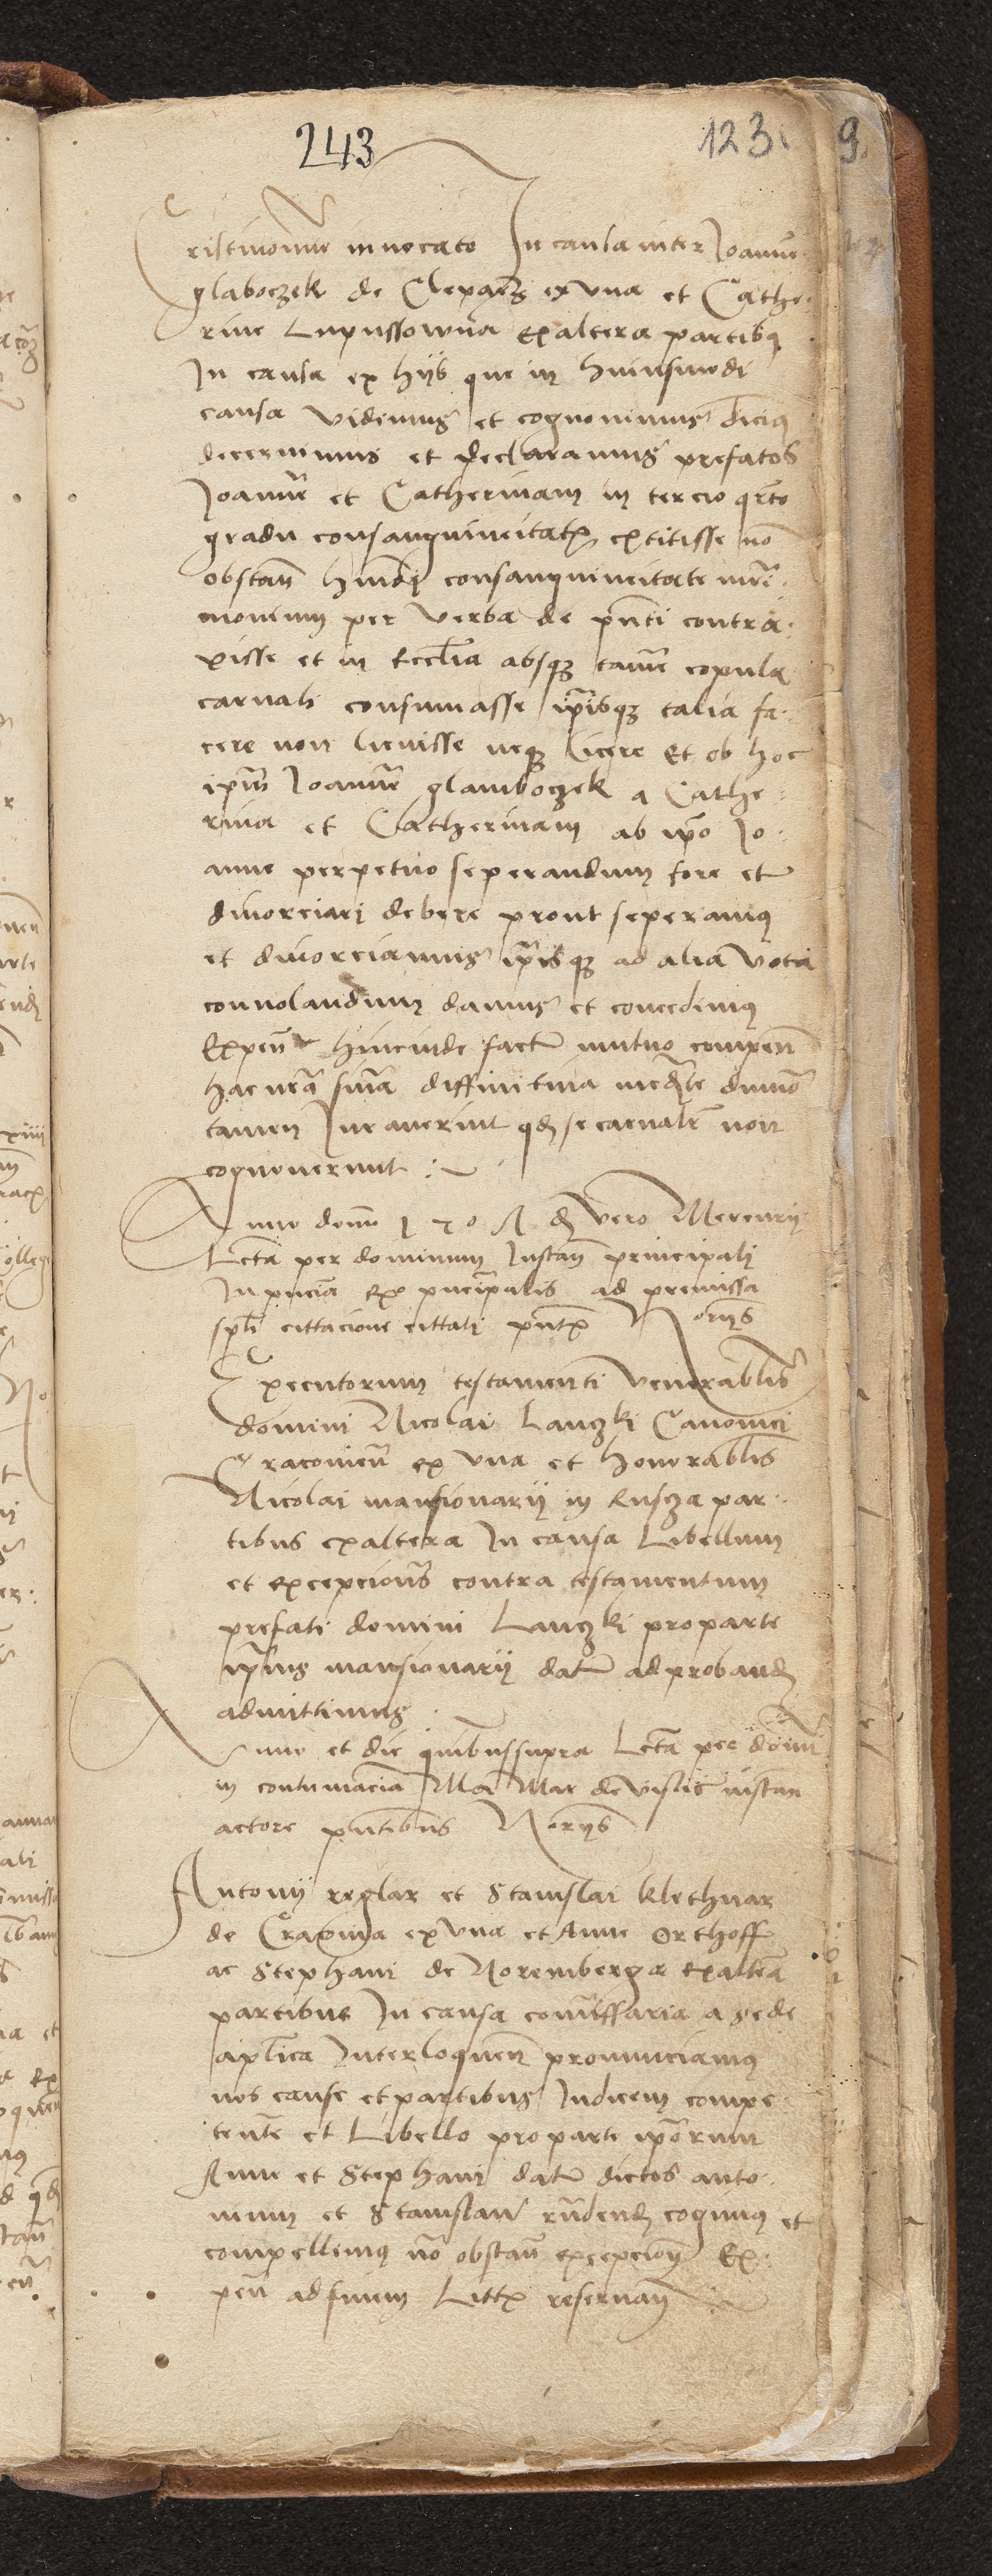 243
123
9.
Cristinomine inuocato In causa inter Joannem
glaboczek de Cleparz ex vna et Cathe-
rine Lupussowna ex altera partibus
In causa ex hijs que in huiusmodi
causa vidimus et cognouimus dicimus
decernimus et declaramus prefatos
Joannem et Catherinam in tercio qrto
gradu consanguineitatis extitisse no
obstan huiusmodi consanguineitate mri-
monium per verba de pnti contra-
xisse et in Ecclia absque tamen copula
carnali consumasse ipisque talia fa-
cere non licuisse neque licere Et ob hoc
ipm Joannem glamboczek a Cathe-
rina et Catherinam ab ipo Jo-
anne perpetuo seperandum fore et
diuorciari debere prout seperamus
et diuorciamus ipisque ad alia vota
conuolandum damus et concedimus
Expen hincinde factas mutuo compen
hac nra snia diffinitiua mediante dummo
tamen Jurauerint quod se carnalr non
cognouerunt
Anno domi die vero Mercurij
Lcta per dominum Instan principali
In pncia Reo principalis ad premissa
spli cittacione cittati pntibus Norijs
Executorum testamenti venerablis
domini Nicolai Lanczki Canonici
Cracouien ex vna et honorablis
Nicolai mansionarij in Ruscza par-
tibus ex altera In causa Libellum
et excepciones contra testamentum
prefati domini Lanczki pro parte
ipius mansionarij datum ad proband
admittimus
Anno et die quibus supra Lcta per domi
in contumaciam Ma Mar de vislic instan
actore pntibus Norijs
Antonij reglar et Stanislai klethnar
de Craxina ex vna et Anne Orthoff
ac Stephani de Noremberga ex altera
partibus In causa comissaria a sede
aplica Interloquen pronunciamus
nos cause et partibus Judicem compe-
tente et Libello pro parte iporum
Anne et Stephani datum dictos anto-
nium et Stanislaum rndend cogimus et
compellimus no obstan excepcion Ex-
pen ad finem Littis reseruan